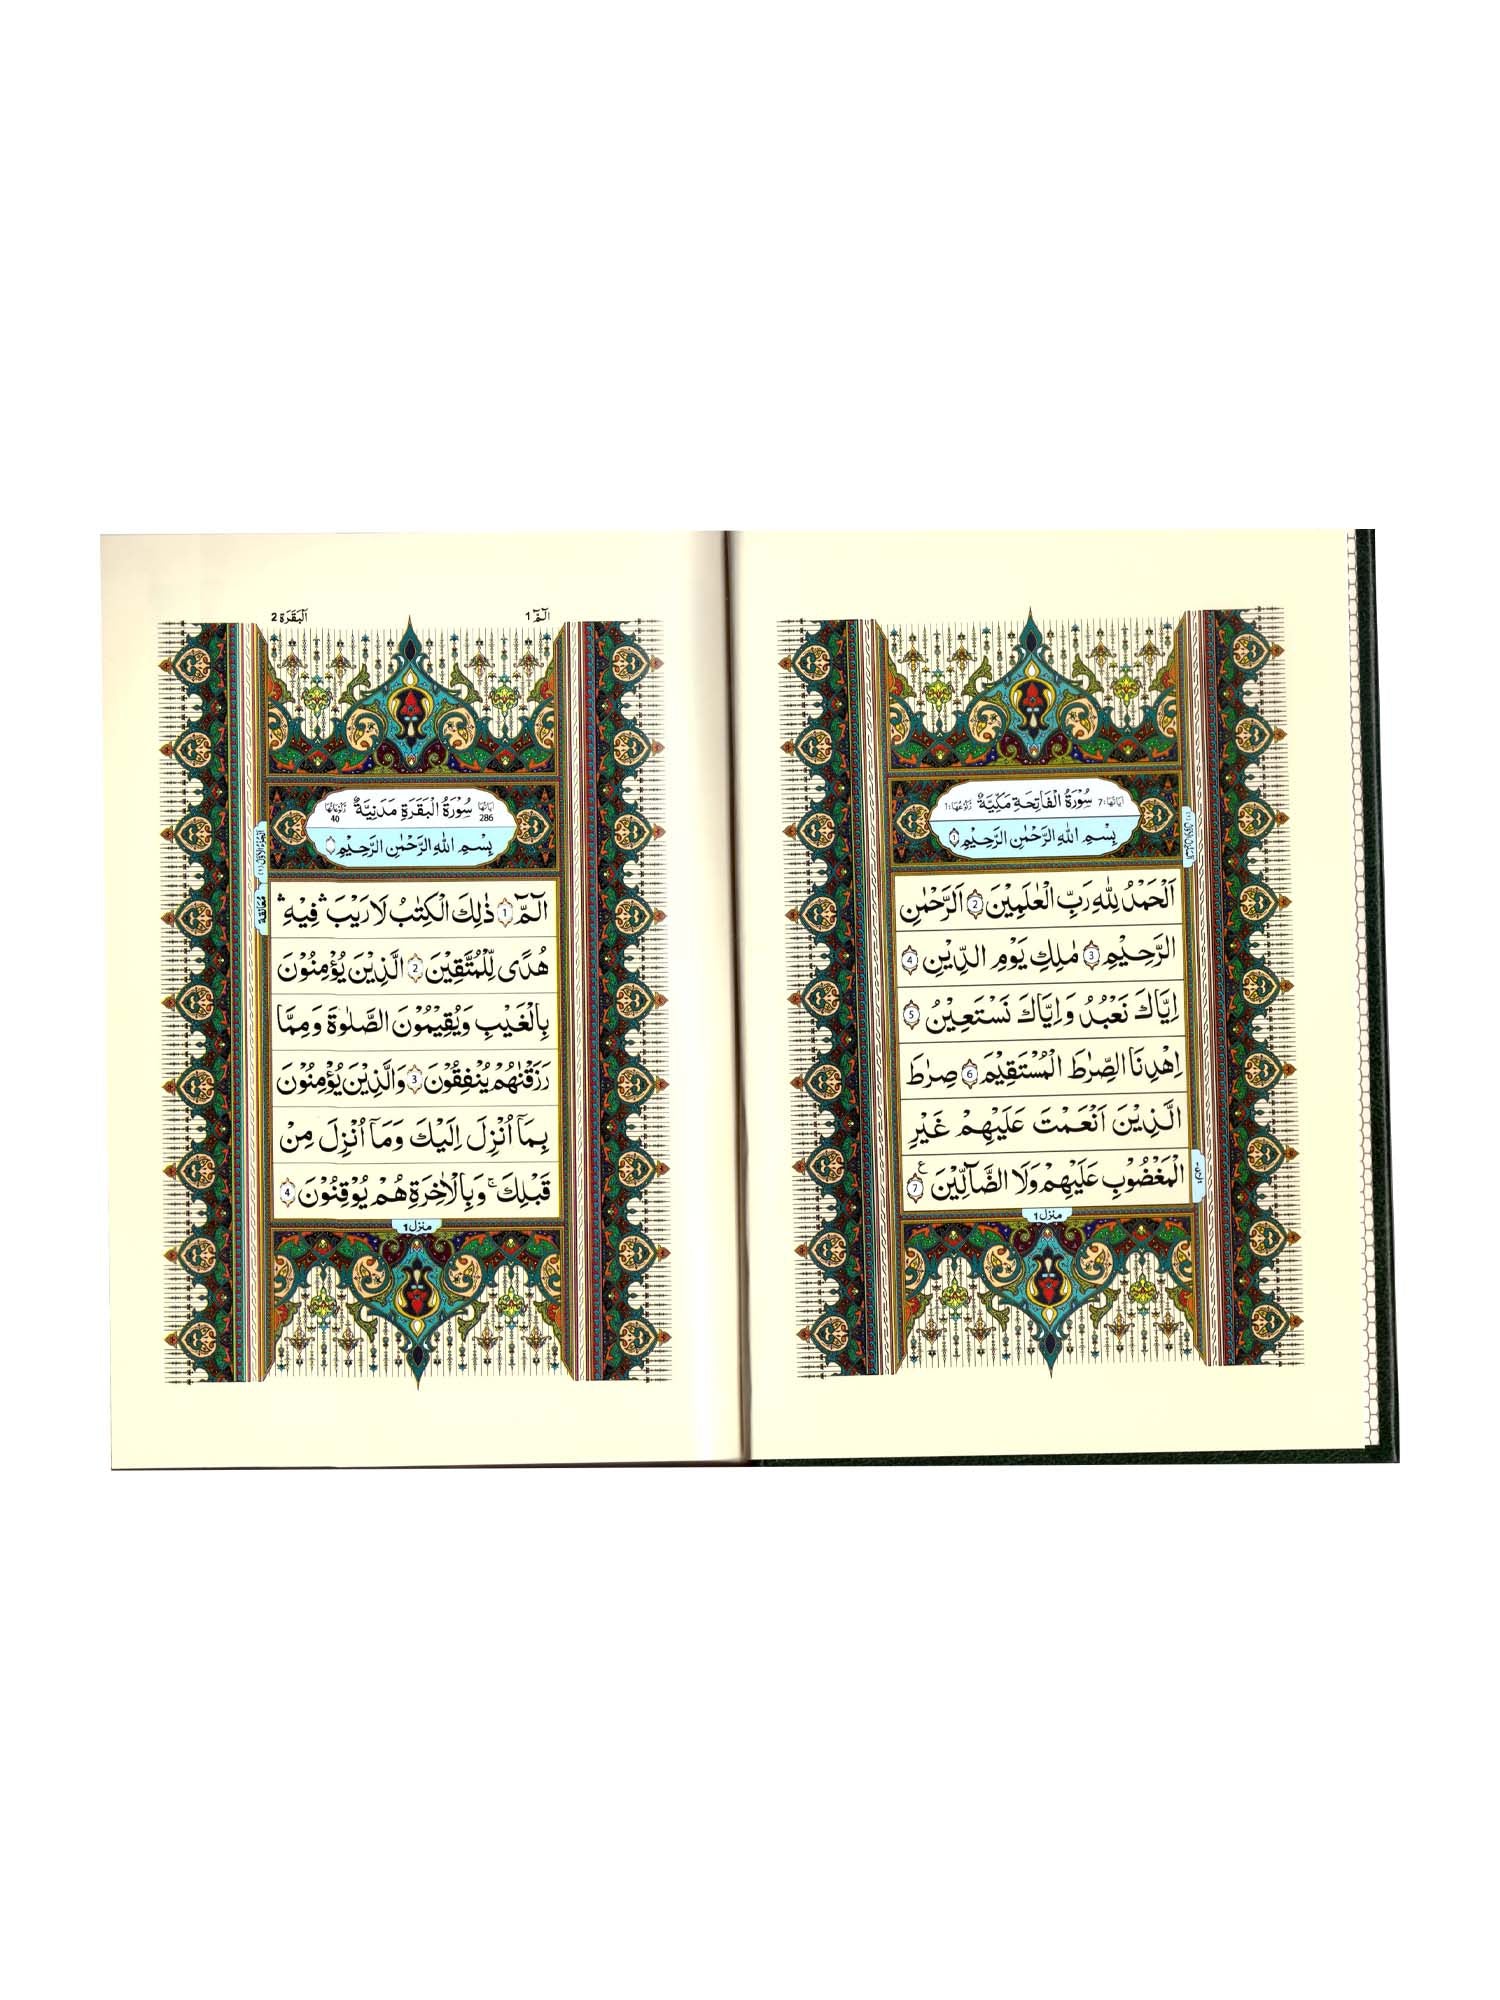 اٰيَاتُهَا: 7 سُوْرَةُ الْفَاتِحَةِ مَكِّيَّةٌ رُكُوْعُهَا: 1
بِسْمِ اللّٰهِ الرَّحْمٰنِ الرَّحِيْمِ 1
اَلْحَمْدُ لِلّٰهِ رَبِّ الْعٰلَمِيْنَ 2 اَلرَّحْمٰنِ
الرَّحِيْمِ 3 مٰلِكِ يَوْمِ الدِّيْنِ 4
اِيَّاكَ نَعْبُدُ وَاِيَّاكَ نَسْتَعِيْنُ 5
اِهْدِنَا الصِّرٰطَ الْمُسْتَقِيْمَ 6 صِرٰطَ
الَّذِيْنَ اَنْعَمْتَ عَلَيْهِمْ غَيْرِ
الْمَغْضُوْبِ عَلَيْهِمْ وَلَا الضَّآلِّيْنَ 7 ع
منزل 1
الٓمّٓ 1
اَلْبَقَرَة 2
اٰيَاتُهَا 286 سُوْرَةُ الْبَقَرَةِ مَدَنِيَّةٌ رُكُوْعَاتُهَا 40
بِسْمِ اللّٰهِ الرَّحْمٰنِ الرَّحِيْمِ
الٓمّٓ 1 ذٰلِكَ الْكِتٰبُ لَا رَيْبَ ۛ فِيْهِ ۛ
هُدًى لِّلْمُتَّقِيْنَ 2 الَّذِيْنَ يُؤْمِنُوْنَ
بِالْغَيْبِ وَيُقِيْمُوْنَ الصَّلٰوةَ وَمِمَّا
رَزَقْنٰهُمْ يُنْفِقُوْنَ 3 وَالَّذِيْنَ يُؤْمِنُوْنَ
بِمَآ اُنْزِلَ اِلَيْكَ وَمَآ اُنْزِلَ مِنْ
قَبْلِكَ ۚ وَبِالْاٰخِرَةِ هُمْ يُوْقِنُوْنَ 4
منزل 1
الجزء الاول (1)
معانقة